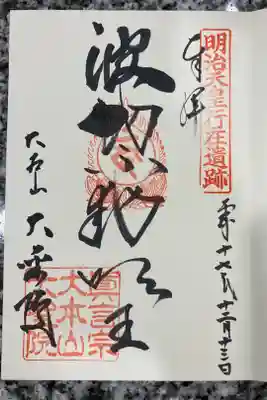 明治天皇行在遺跡
奉拝
平成十七年十二月十三日
波切不動明王
大本山 大聖院
眞言宗
大本山
院